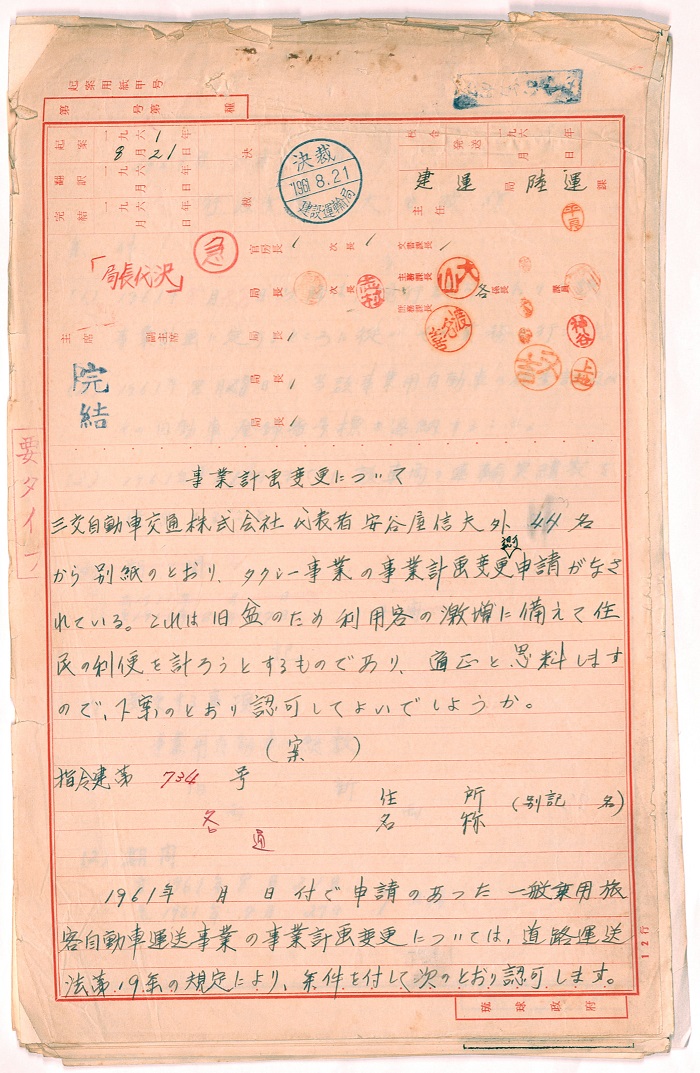 起案用紙甲号
第 号第 種
起案 一九六1年 8月21日
翻訳 一九六 年 月 日
完結 一九六 年 月 日
決裁
決裁
1961.8.21
建設運輸局
発送 一九六 年 月 日
建運局 陸運課
主任
平良
急
官房長
次長
文書課長
「局長代決」
局長
次長
主務課長
各係長
課員
神谷
上地
主席
副主席
局長
局長
局長
完結
要タイプ
事業計画変更について
三交自動車交通株式会社 代表者 安谷屋信夫外 44名
から別紙のとおり、タクシー事業の事業計画変更申請がなさ
れている。これは旧盆のため利用客の激増に備えて住
民の利便を計ろうとするものであり、適正と思料します
ので、下案のとおり認可してよいでしようか。
(案)
指令建第 734 号
住所
名称
(別記 名)
各通
1961年 月 日付で申請のあった一般乗用旅
客自動車運送事業の事業計画変更については、道路運送
法第19条の規定により、条件を付して次のとおり認可します。
12行
琉球政府